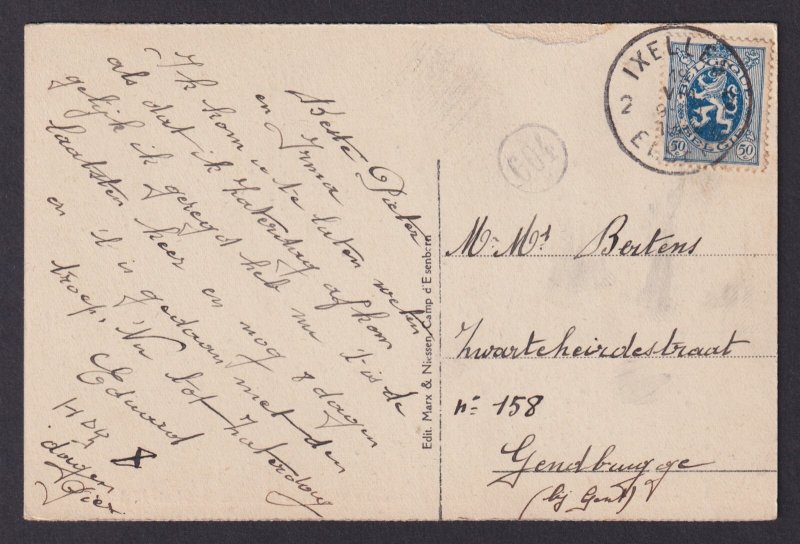 Beste Pieter
en Irma
Ik kom u te laten weten
als dat ik Zaterdag afkom
gelijk ik gezegd heb nu 't is de
laatsten keer en nog 8 dagen
en 't is gedaan met den
troep. Nu tot Zaterdag
Edward
8
dagen
IXELLES
2
ELSENE
BELGIQUE
BELGIË
50 50
604
Mr. Md Bertens
Zwarteheirdestraat
n= 158
Gendbrugge
(bij Gent)
Edit. Marx & Niessen, Camp d'Elsenborn